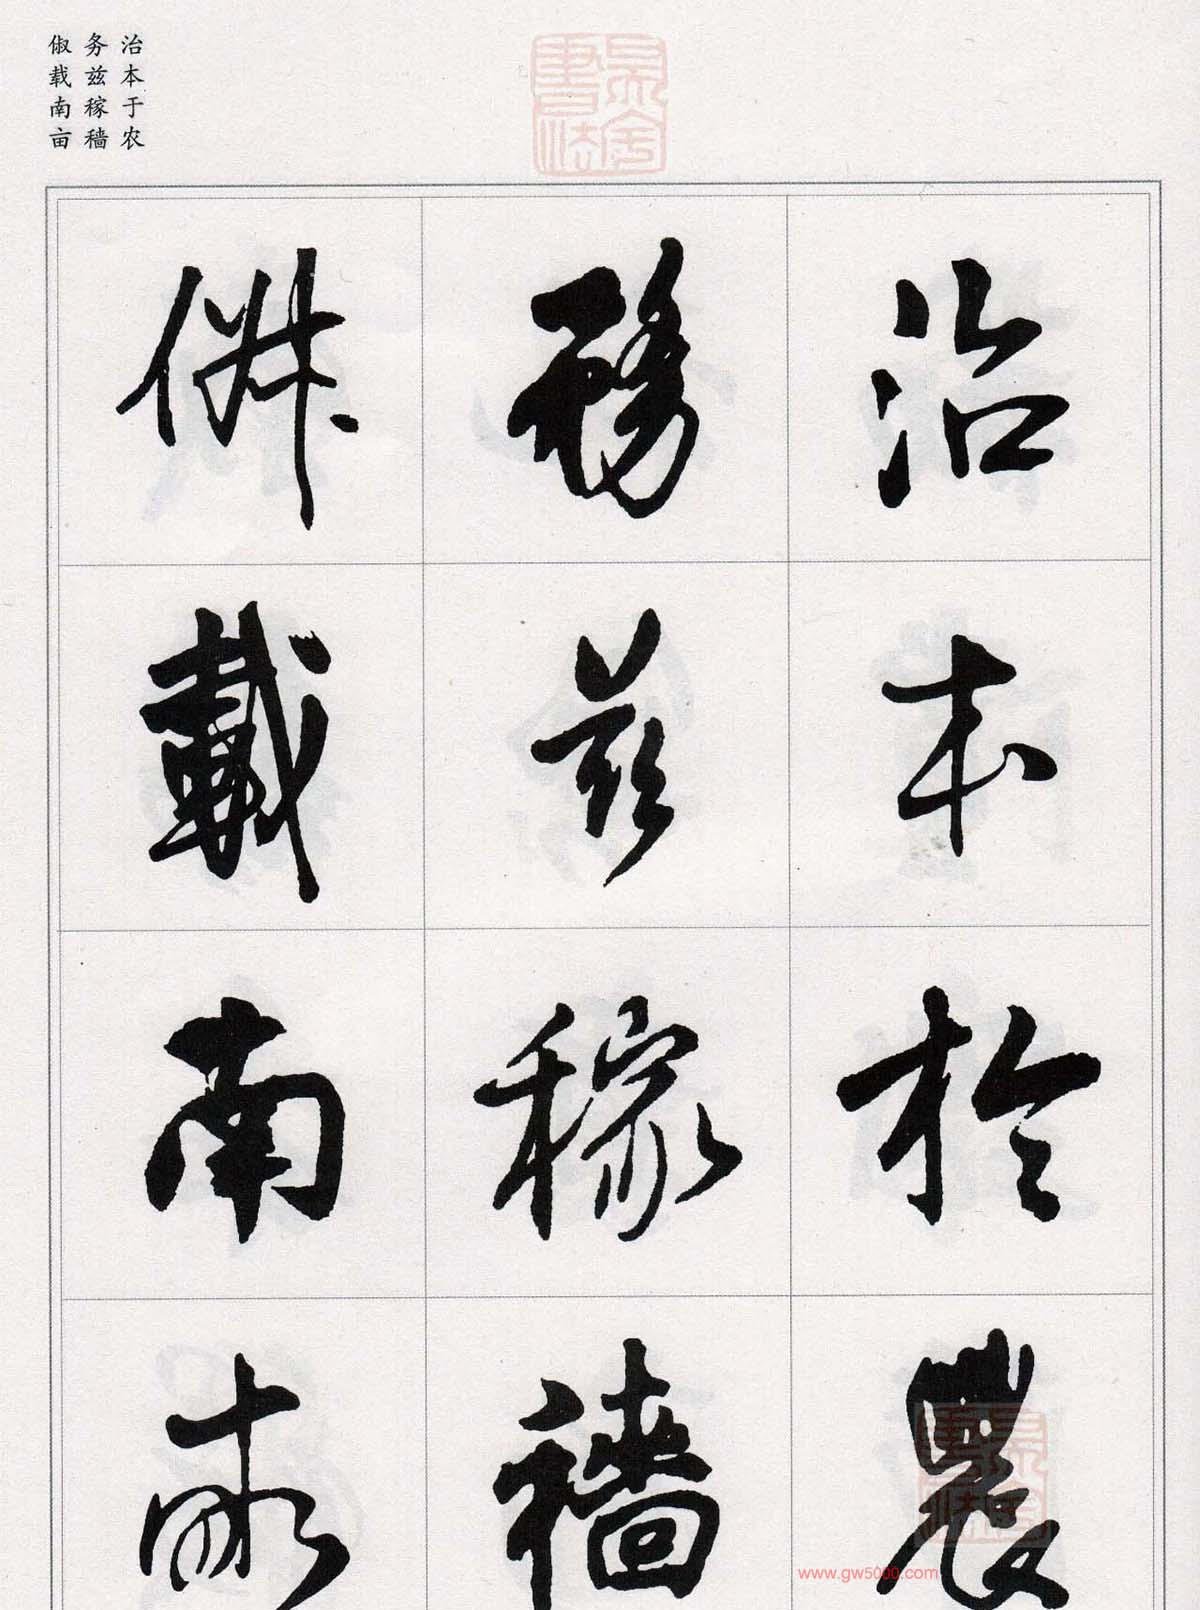 治本于农
务兹稼穑
俶载南亩
治本於農
務茲稼穡
俶載南畝
www.gw5000.com